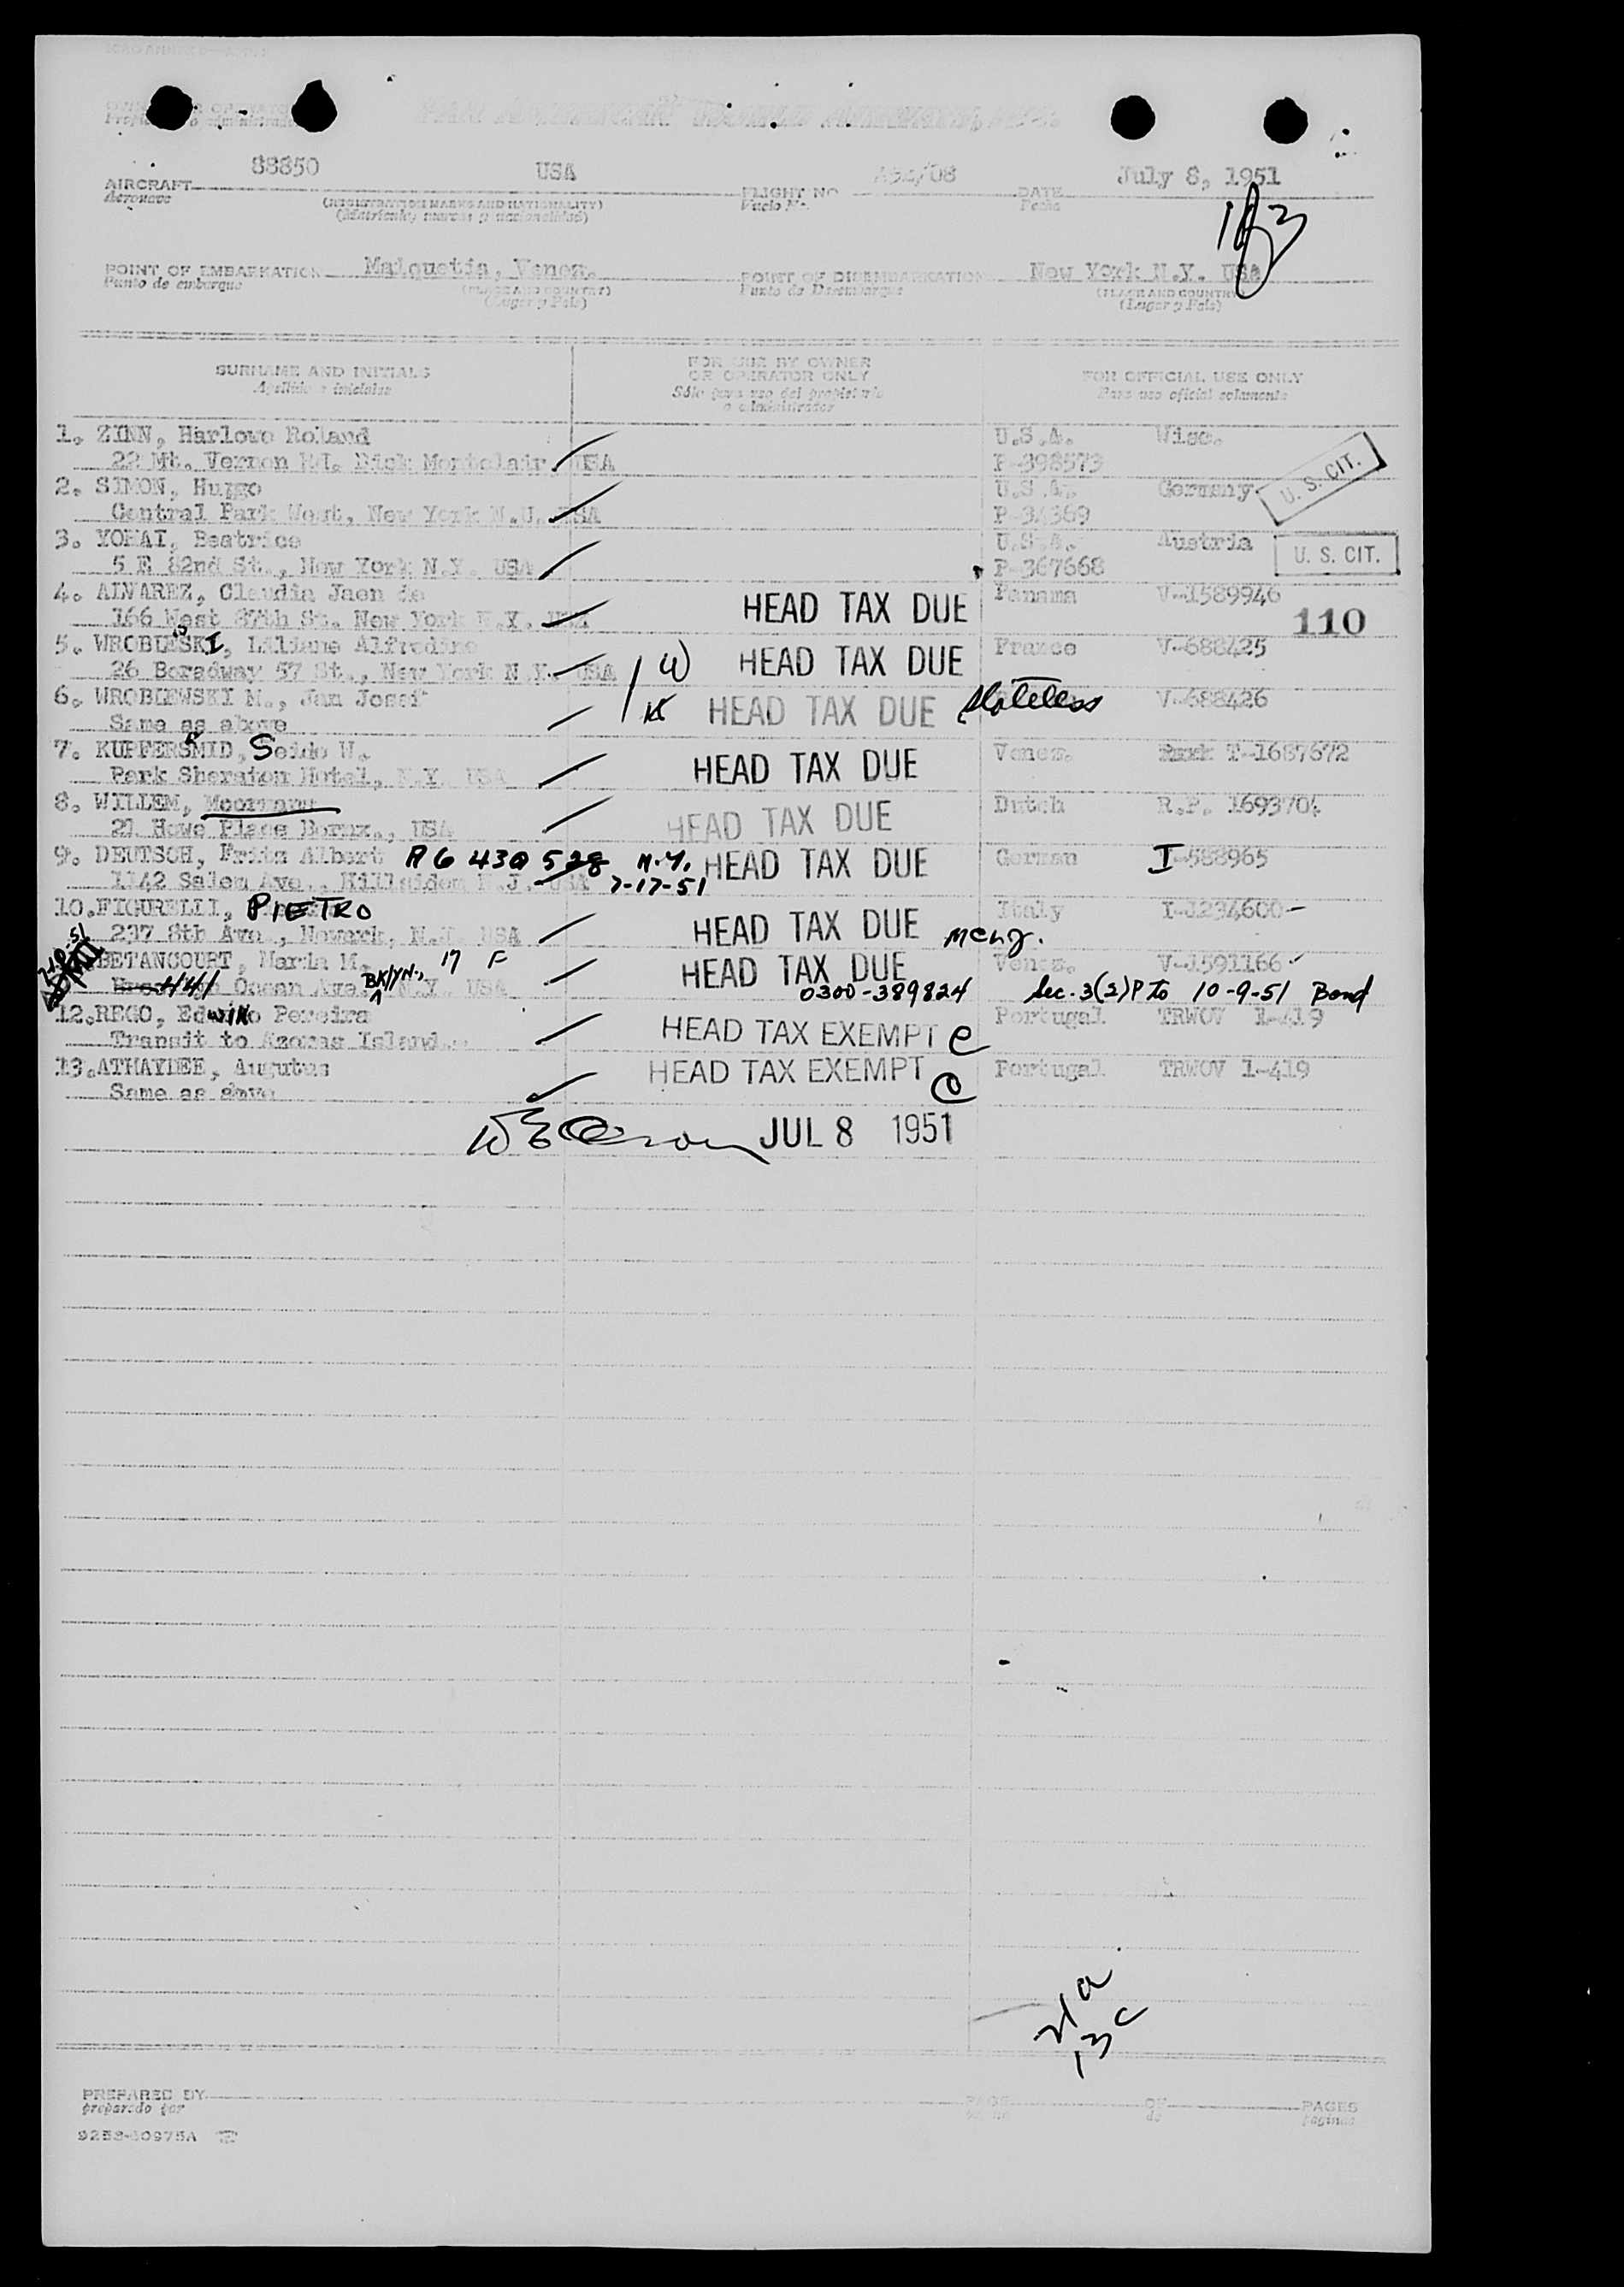 PAN AMERICAN WORLD AIRWAYS, INC.
88850 USA A51/08 July 8, 1951
AIRCRAFT FLIGHT NO DATE
Aeronave (REGISTRATION MARKS AND NATIONALITY) Vuelo No. Fecha
(Matrícula, marcas y nacionalidad)
183
POINT OF EMBARKATION Maiquetia, Venez. POINT OF DISEMBARKATION New York N.Y. USA
Punto de embarque (PLACE AND COUNTRY) Punto de Desembarque (PLACE AND COUNTRY)
(Lugar y País) (Lugar y País)
SURNAME AND INITIALS FOR USE BY OWNER OR OPERATOR ONLY FOR OFFICIAL USE ONLY
Apellido e iniciales Sólo para uso del propietario o administrador Para uso oficial solamente
1. ZINN, Harlowe Roland U.S.A. Wisc.
22 Mt. Vernon Rd. Montclair, USA P-398573
2. SIMON, Huggo U.S.A. Germany U. S. CIT.
Central Park West, New York N.U. USA P-34369
3. YOHAI, Beatrice U.S.A. Austria U. S. CIT.
5 E 82nd St., New York N.Y. USA P-367668
4. ALVAREZ, Claudia Jaen de HEAD TAX DUE Panama V-1589946
166 West 87th St. New York N.Y. USA 110
5. WROBLESKI, Liliane Alfredine W HEAD TAX DUE France V-688425
26 Boradway 57 St., New York N.Y. USA
6. WROBLEWSKI M., Jan Josef HEAD TAX DUE Stateless V-688426
Same as above
7. KUPFERSMID, Seide W. HEAD TAX DUE Venez. T-1687672
Park Sheraton Hotel, N.Y. USA
8. WILLEM, HEAD TAX DUE Dutch R.P. 1693704
21 Howe Place Bornx., USA
9. DEUTSCH, Fritz Albert A6 430 528 N.Y. HEAD TAX DUE German I-588965
1142 Salem Ave., Hillsiden N.J. USA 7-17-51
10. FIGURELLI, PIETRO HEAD TAX DUE Italy I-1234600
237 8th Ave., Newark, N.J. USA
BETANCOURT, Maria M. 17 F HEAD TAX DUE Venez. V-1591166
1441 Ocean Ave. BKlYN., N.Y. USA 0300-389824 Sec. 3(2) P to 10-9-51 Bond
12. REGO, Edwin Pereira HEAD TAX EXEMPT Portugal TRWOV 1-419
Transit to Azores Island
13. ATHAYDEE, Augutus HEAD TAX EXEMPT Portugal TRWOV 1-419
Same as above
JUL 8 1951
PREPARED BY PAGE OF PAGES
preparado por de páginas
9258-10975A